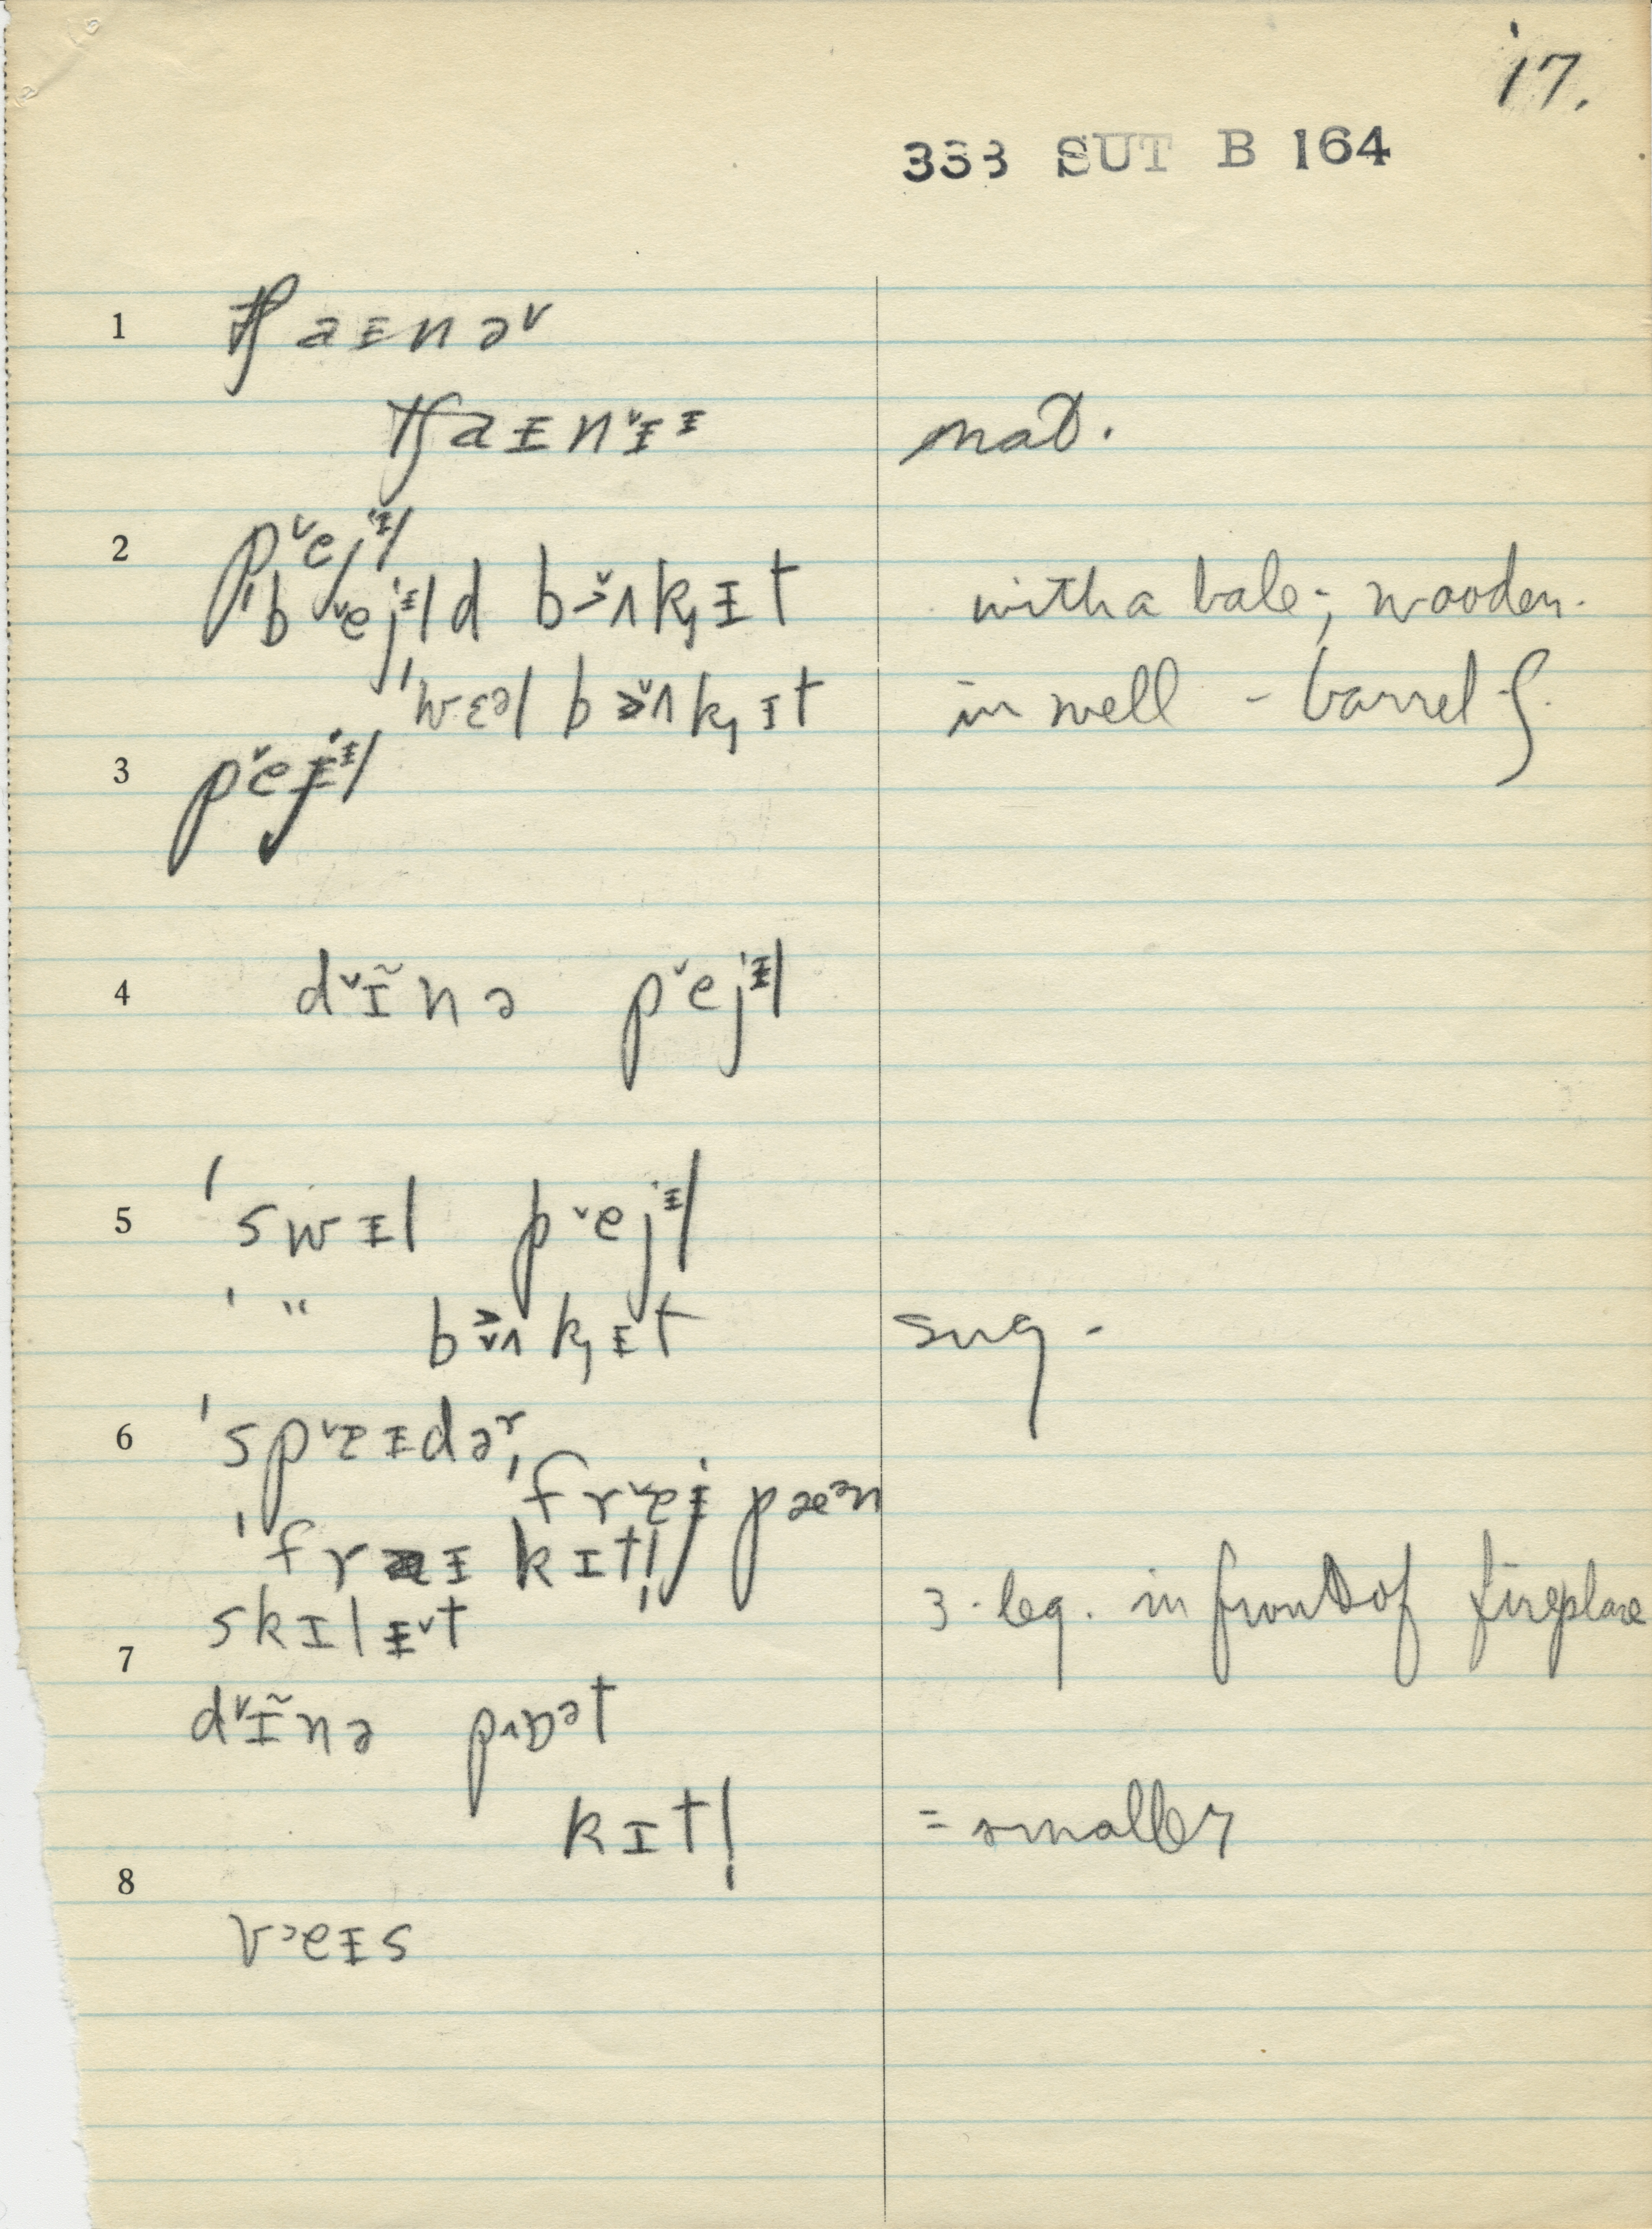 17.
333 SUT B 164
1 tʃaɪnə˅
tʃaɪn˅ɪɪ nat.
2 p˅ejᵻl
'b˅ejᵻld bʌkɪt with a bale; wooden.
'wɛəl bʌkɪt in well - barrel
3 p˅ejᵻl
4 d˅ɪ̃nə p˅ejᵻl
5 'swɪl p˅ejᵻl
' " bʌkɪt sug -
6 'sp˅ɐɪdər
'fr˅ɐɪ pæᵊn
'fraɪ kɪtl̩
skɪlɪ˅t 3-leg. in front of fireplace
7 d˅ɪ̃nə pɒᵊt
kɪtl̩ = smaller
8 veɪs